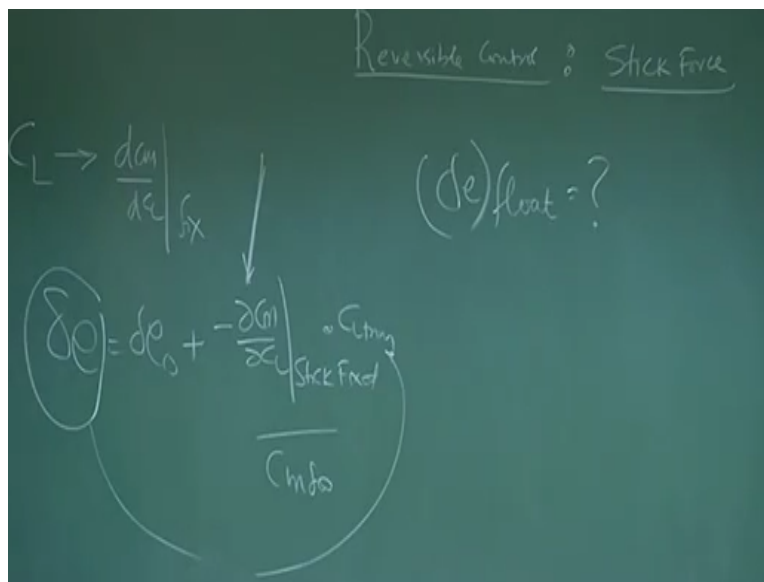 Reversible Control : Stick Force
C_L → dCm/dC_L |fix
(δe)float = ?
δe = δe_0 + -∂Cm/∂C_L |Stick Fixed . C_L trim
Cmδe